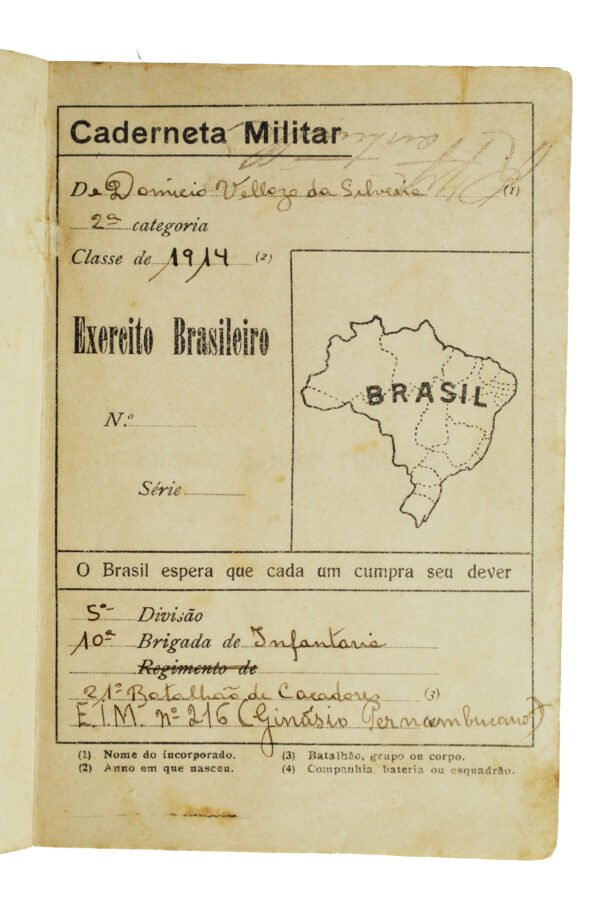 Caderneta Militar
De Domicio Vellozo da Silveira (1)
2ª categoria
Classe de 1914 (2)
Exercito Brasileiro
BRASIL
N.º
Série
O Brasil espera que cada um cumpra seu dever
5ª Divisão
10ª Brigada de Infantaria
Regimento de
21º Batalhão de Caçadores (3)
E.I.M. nº 216 (Ginásio Pernambucano)
(1) Nome do incorporado.
(2) Anno em que nasceu.
(3) Batalhão, grupo ou corpo.
(4) Companhia, bateria ou esquadrão.